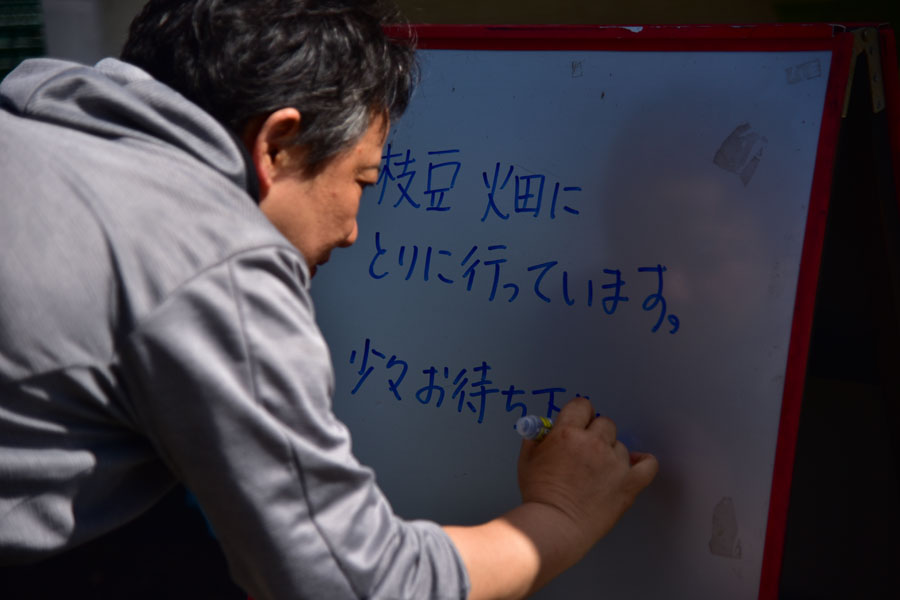 枝豆 畑に
とりに行っています。
少々お待ち下